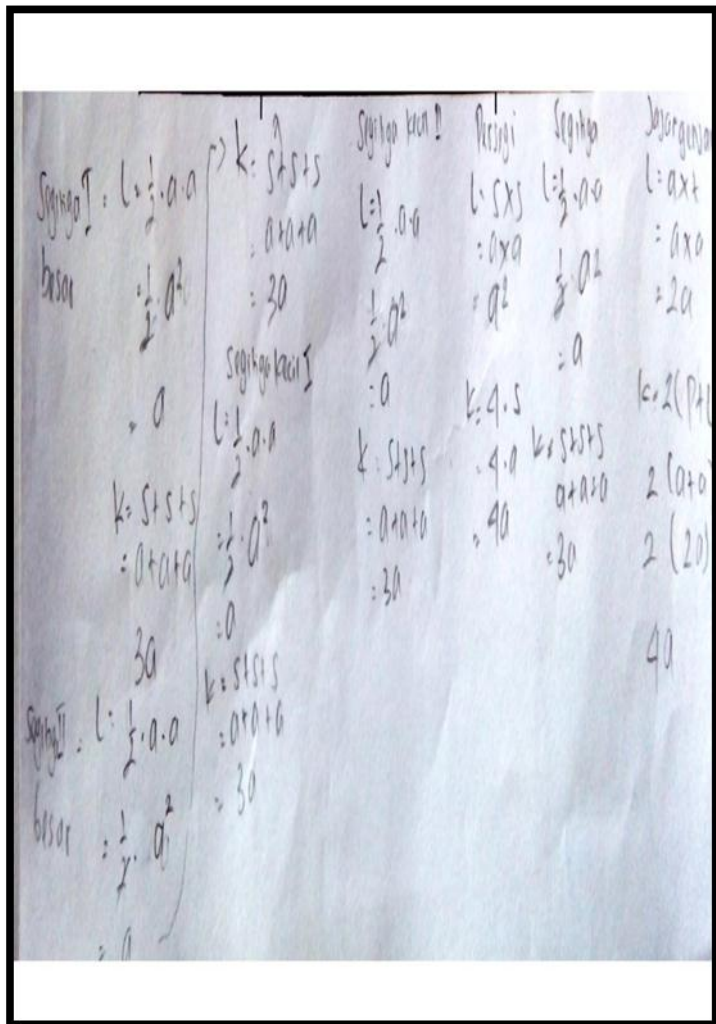 Segitiga I = L = 1/2 . a . a
besar
= 1/2 . a²
= a
k = s + s + s
= a + a + a
3a
L = 1/2 . a . a
besar
= 1/2 . a²
= a
k = s + s + s
= a + a + a
= 3a
Segitiga kecil I
L = 1/2 . a . a
= 1/2 . a²
= a
k = s + s + s
= a + a + a
= 3a
Segitiga kecil II
L = 1/2 . a . a
1/2 . a²
= a
k = s + s + s
= a + a + a
= 3a
Persegi
L = s x s
= a x a
= a²
k = 4 . s
= 4 . a
= 4a
Segitiga
L = 1/2 . a . a
1/2 . a²
= a
k = s + s + s
a + a + a
= 3a
L = a x t
= a x a
= 2a
k = 2 (p + l
2 (a + a)
2 (2a)
4a